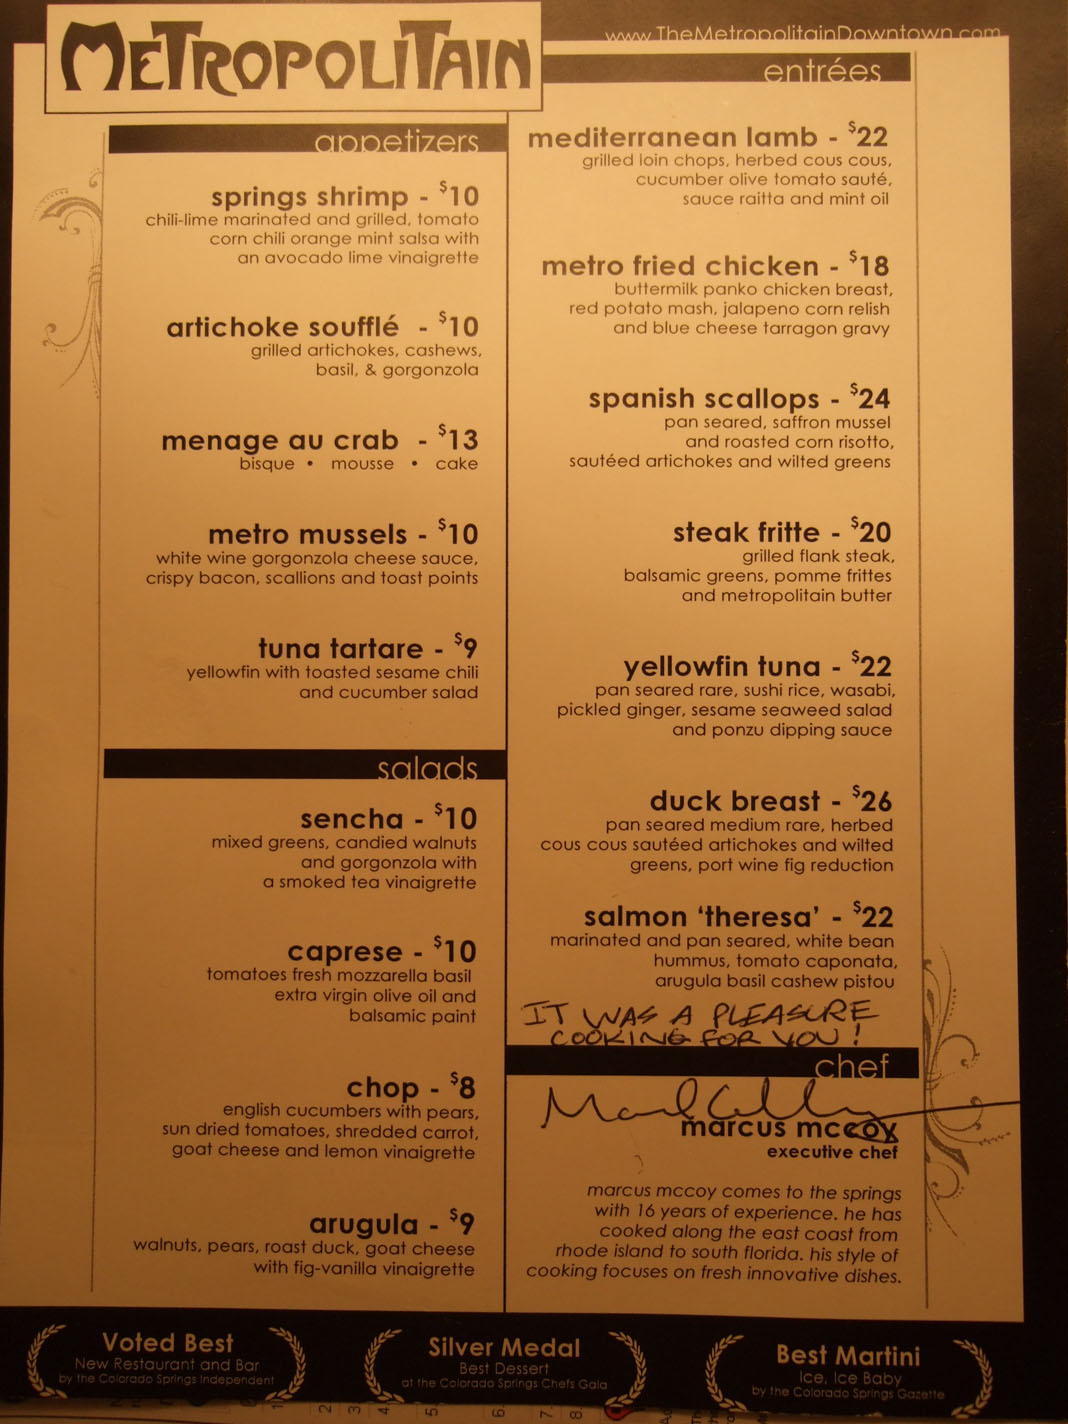 METROPOLITAIN
www.TheMetropolitainDowntown.com
appetizers
springs shrimp - $10
chili-lime marinated and grilled, tomato
corn chili orange mint salsa with
an avocado lime vinaigrette
artichoke soufflé - $10
grilled artichokes, cashews,
basil, & gorgonzola
menage au crab - $13
bisque • mousse • cake
metro mussels - $10
white wine gorgonzola cheese sauce,
crispy bacon, scallions and toast points
tuna tartare - $9
yellowfin with toasted sesame chili
and cucumber salad
salads
sencha - $10
mixed greens, candied walnuts
and gorgonzola with
a smoked tea vinaigrette
caprese - $10
tomatoes fresh mozzarella basil
extra virgin olive oil and
balsamic paint
chop - $8
english cucumbers with pears,
sun dried tomatoes, shredded carrot,
goat cheese and lemon vinaigrette
arugula - $9
walnuts, pears, roast duck, goat cheese
with fig-vanilla vinaigrette
entrées
mediterranean lamb - $22
grilled loin chops, herbed cous cous,
cucumber olive tomato sauté,
sauce raitta and mint oil
metro fried chicken - $18
buttermilk panko chicken breast,
red potato mash, jalapeno corn relish
and blue cheese tarragon gravy
spanish scallops - $24
pan seared, saffron mussel
and roasted corn risotto,
sautéed artichokes and wilted greens
steak fritte - $20
grilled flank steak,
balsamic greens, pomme frittes
and metropolitain butter
yellowfin tuna - $22
pan seared rare, sushi rice, wasabi,
pickled ginger, sesame seaweed salad
and ponzu dipping sauce
duck breast - $26
pan seared medium rare, herbed
cous cous sautéed artichokes and wilted
greens, port wine fig reduction
salmon ‘theresa’ - $22
marinated and pan seared, white bean
hummus, tomato caponata,
arugula basil cashew pistou
IT WAS A PLEASURE
COOKING FOR YOU!
chef
marcus mccoy
executive chef
marcus mccoy comes to the springs
with 16 years of experience. he has
cooked along the east coast from
rhode island to south florida. his style of
cooking focuses on fresh innovative dishes.
Voted Best
New Restaurant and Bar
by the Colorado Springs Independent
Silver Medal
Best Dessert
at the Colorado Springs Chefs Gala
Best Martini
Ice, Ice Baby
by the Colorado Springs Gazette
2.
3.
4.
5.
6.
7.
8.